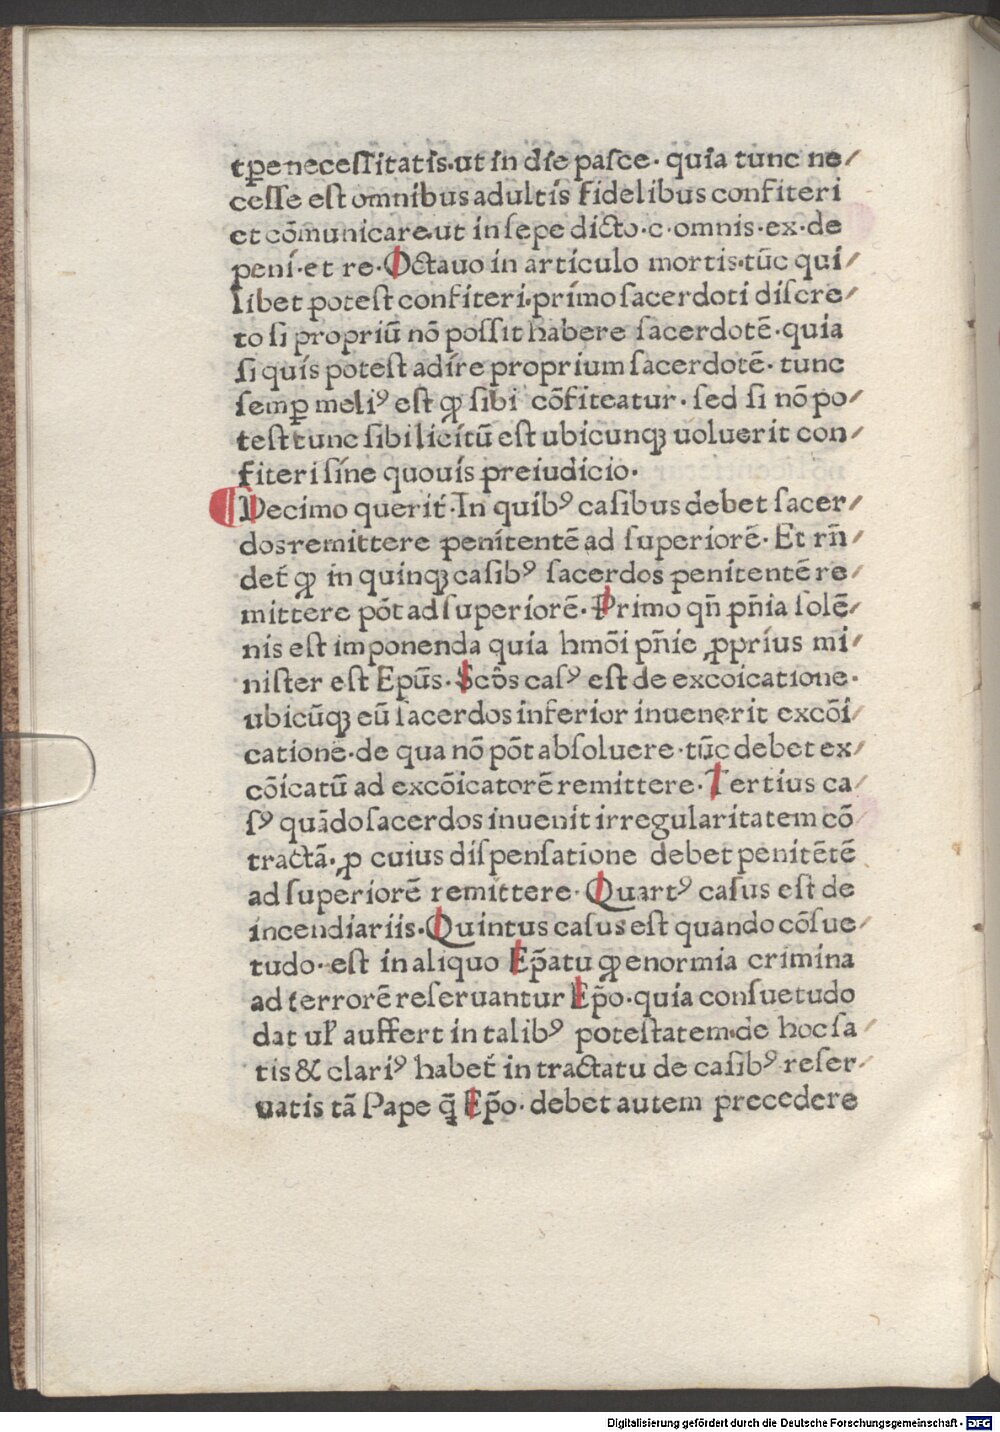 tꝑe necessitatis.ut in die pasce. quia tunc ne/
cesse est omnibus adultis fidelibus confiteri
et cōmunicare.ut in sepe dicto.c.omnis.ex.de
peni.et re.Octauo in articulo mortis.tūc qui/
libet potest confiteri.primo sacerdoti discre/
to si propriū nō possit habere sacerdotē.quia
si quis potest adire proprium sacerdotē. tunc
semꝑ meliꝰ est ꝙ sibi cōfiteatur. sed si nō po/
test tunc sibi licitū est ubicunqꝫ uoluerit con/
fiteri sine quouis preiudicio.
Decimo querit́.In quibꝰ casibus debet sacer/
dos remittere penitentē ad superiorē. Et rn̄/
det́ ꝙ in quinqꝫ casibꝰ sacerdos penitentē re/
mittere pōt ad superiorē. Primo qn̄ pn̄ia solē/
nis est imponenda quia hmōi pn̄ie ꝓprius mi/
nister est Epūs. Scōs casꝰ est de excōicatione.
ubicūqꝫ eū sacerdos inferior inuenerit excōi/
catione.de qua nō pōt absoluere.tūc debet ex/
cōicatū ad excōicatorē remittere. Tertius ca/
sꝰ quādo sacerdos inuenit irregularitatem cō
tractā.ꝓ cuius dispensatione debet penitētē
ad superiorē remittere. Quartꝰ casus est de
incendiariis.Quintus casus est quando cōsue/
tudo.est in aliquo Ep̄atu ꝙ enormia crimina
ad terrorē reseruantur Ep̄o.quia consuetudo
dat ul' auffert in talibꝰ potestatem.de hoc sa/
tis & clariꝰ habet́ in tractatu de casibꝰ reser/
uatis tā Pape q̄ Ep̄o. debet autem precedere
Digitalisierung gefördert durch die Deutsche Forschungsgemeinschaft - DFG